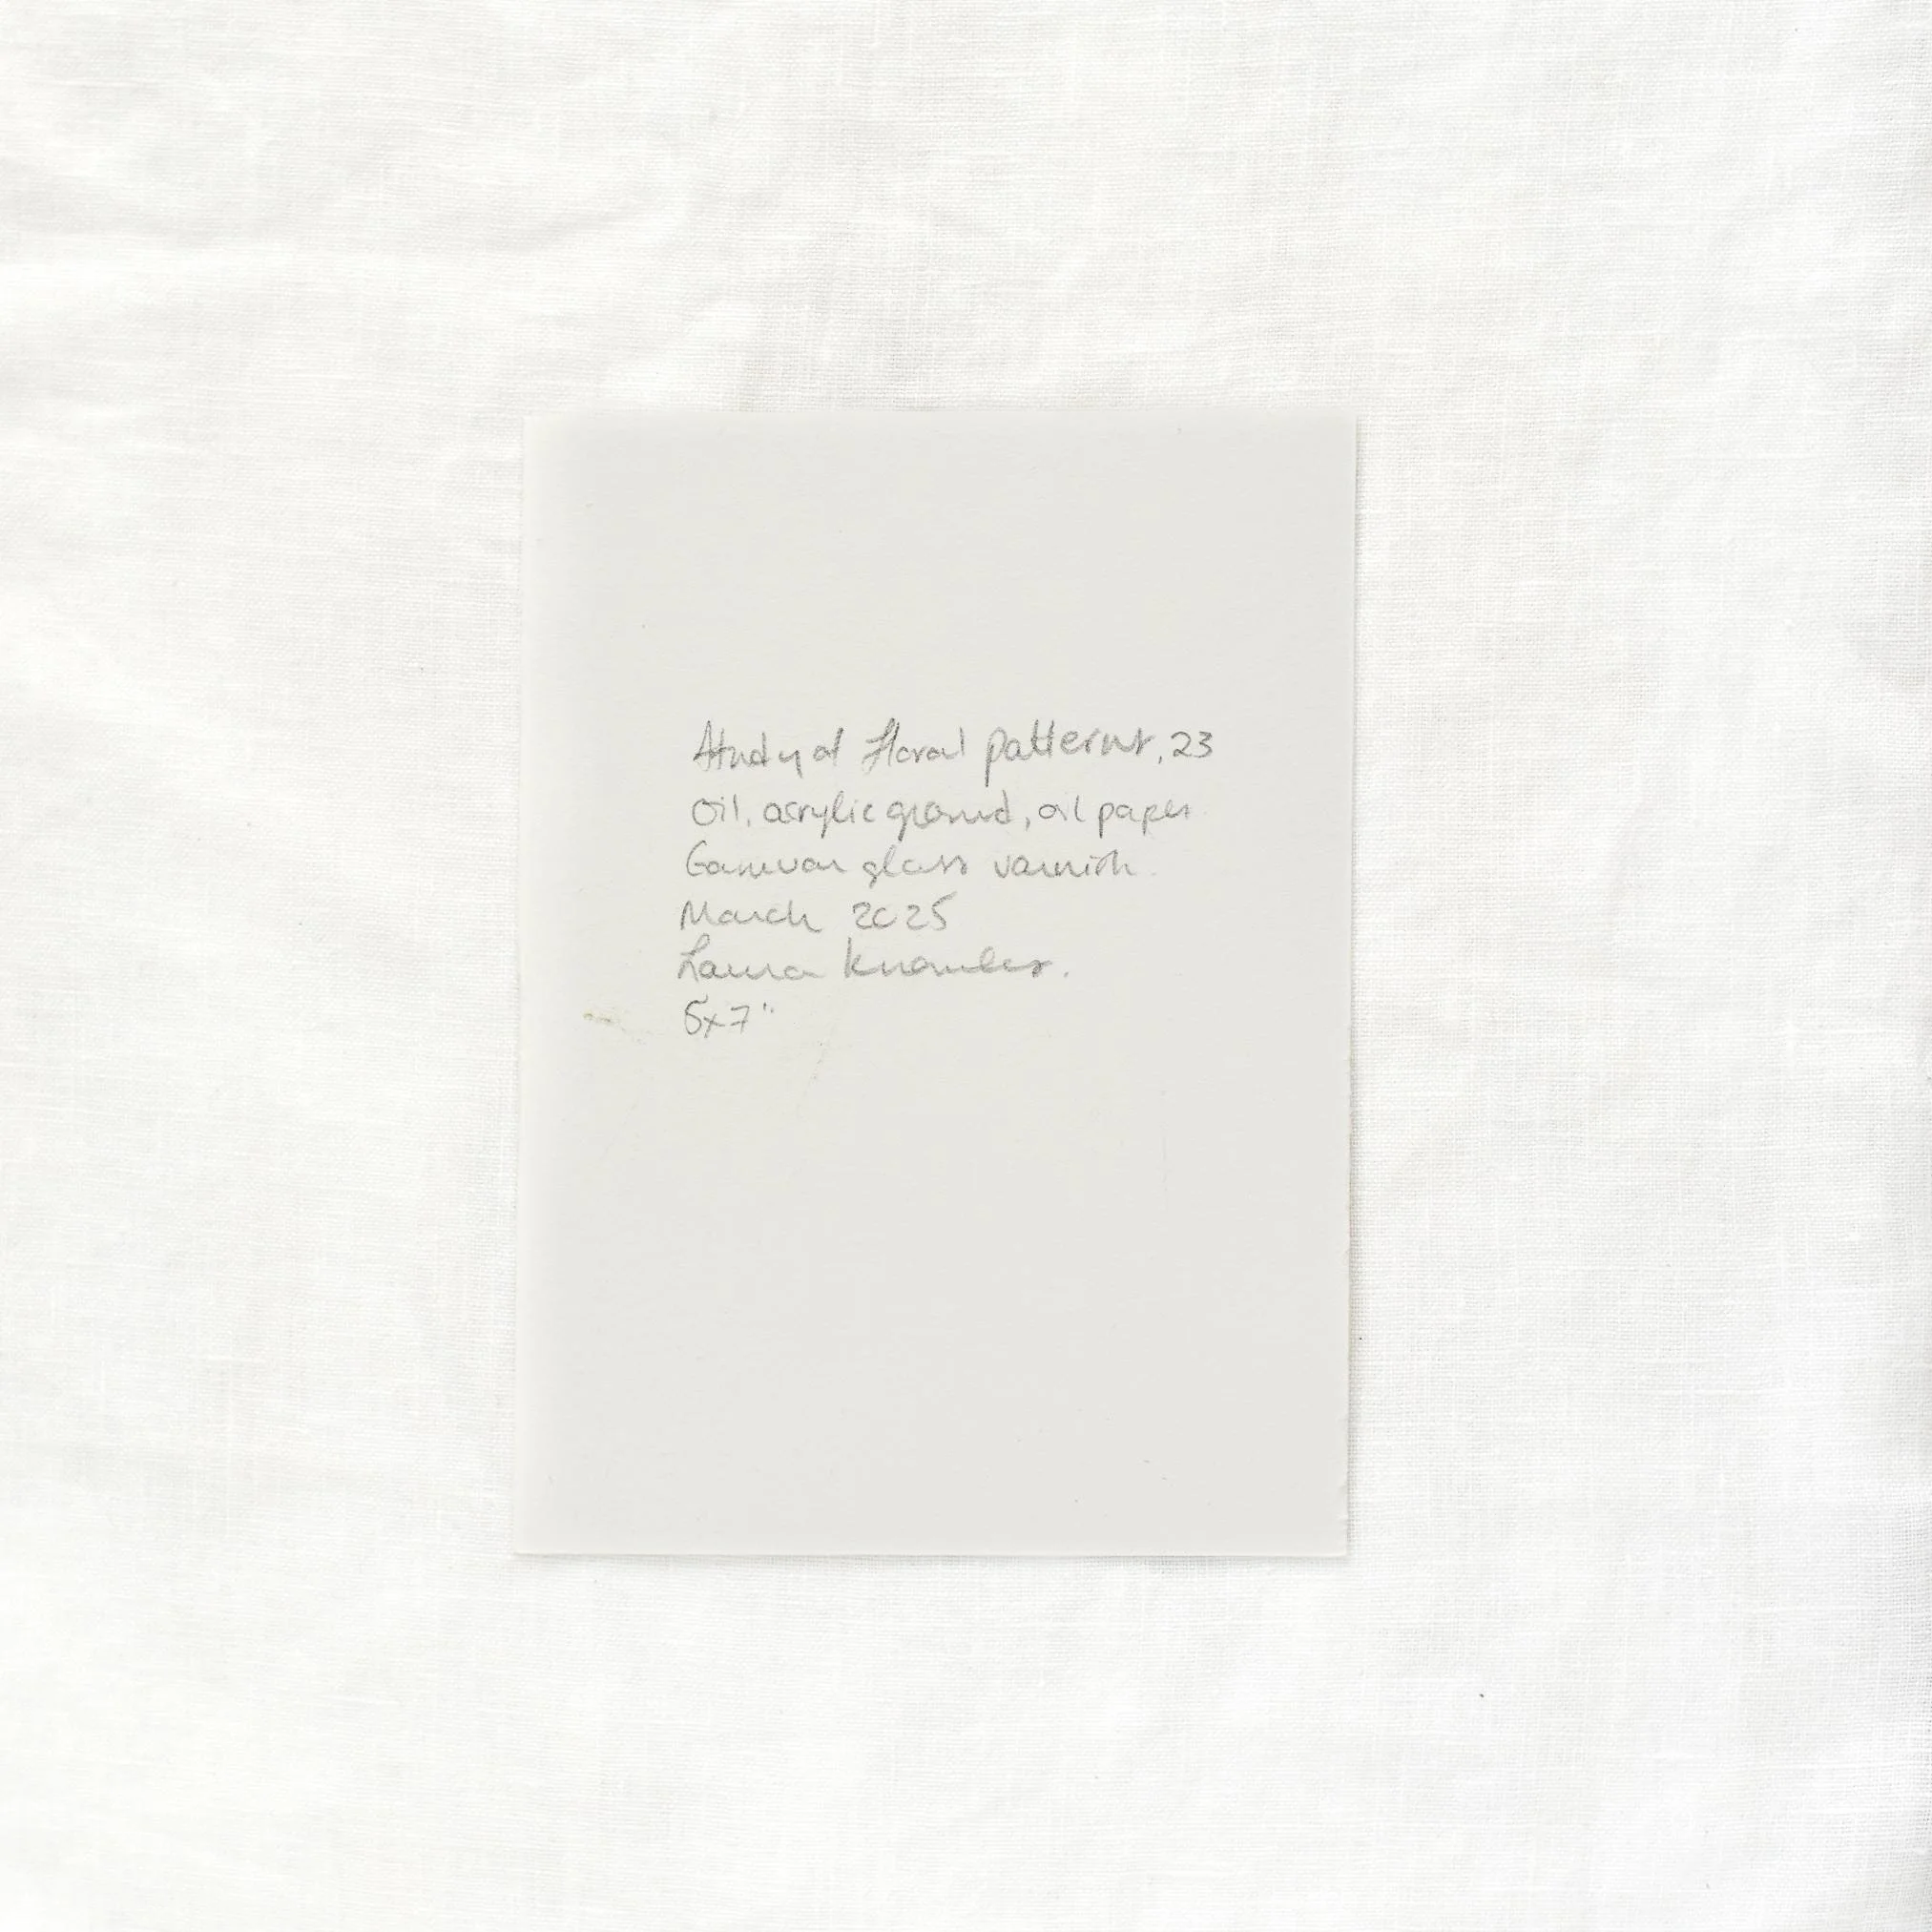 Study of Floral patterns, 23
Oil, acrylic ground, oil paper
Gamvar gloss varnish.
March 2025
Laura Knowles.
5x7"